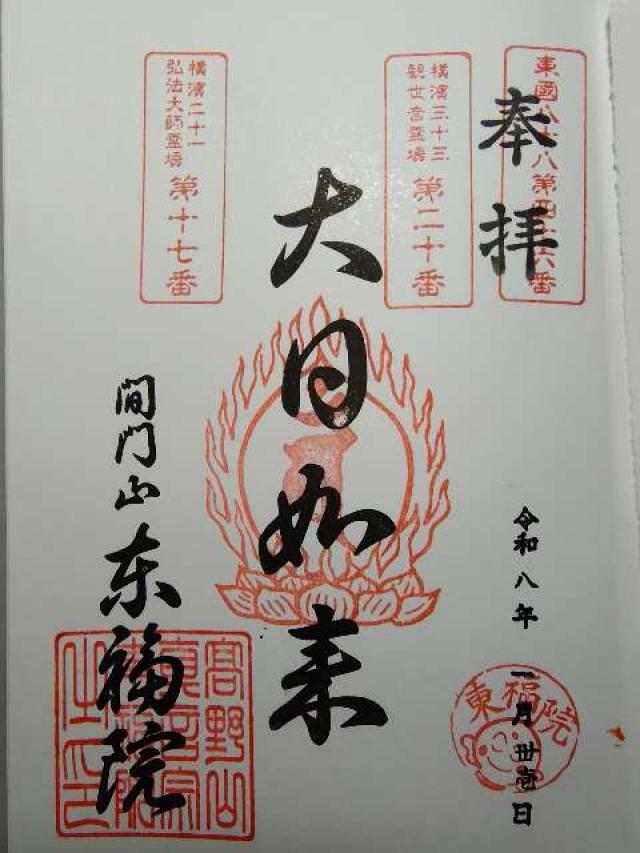 奉拝
東國八十八第四十六番
横濱三十三
観世音霊場
第二十番
大日如来
横濱二十一
弘法大師霊場
第十七番
間門山東福院
令和八年
一月卅壱日
東福院
高野山
真言宗
東福院
之印